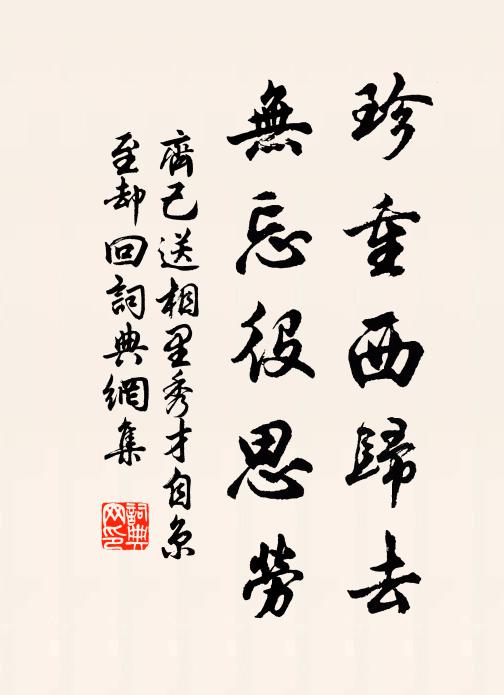 珍重西歸去
無忘役思勞
齊己送相里秀才自京
至却回詞典網集
詞典网印